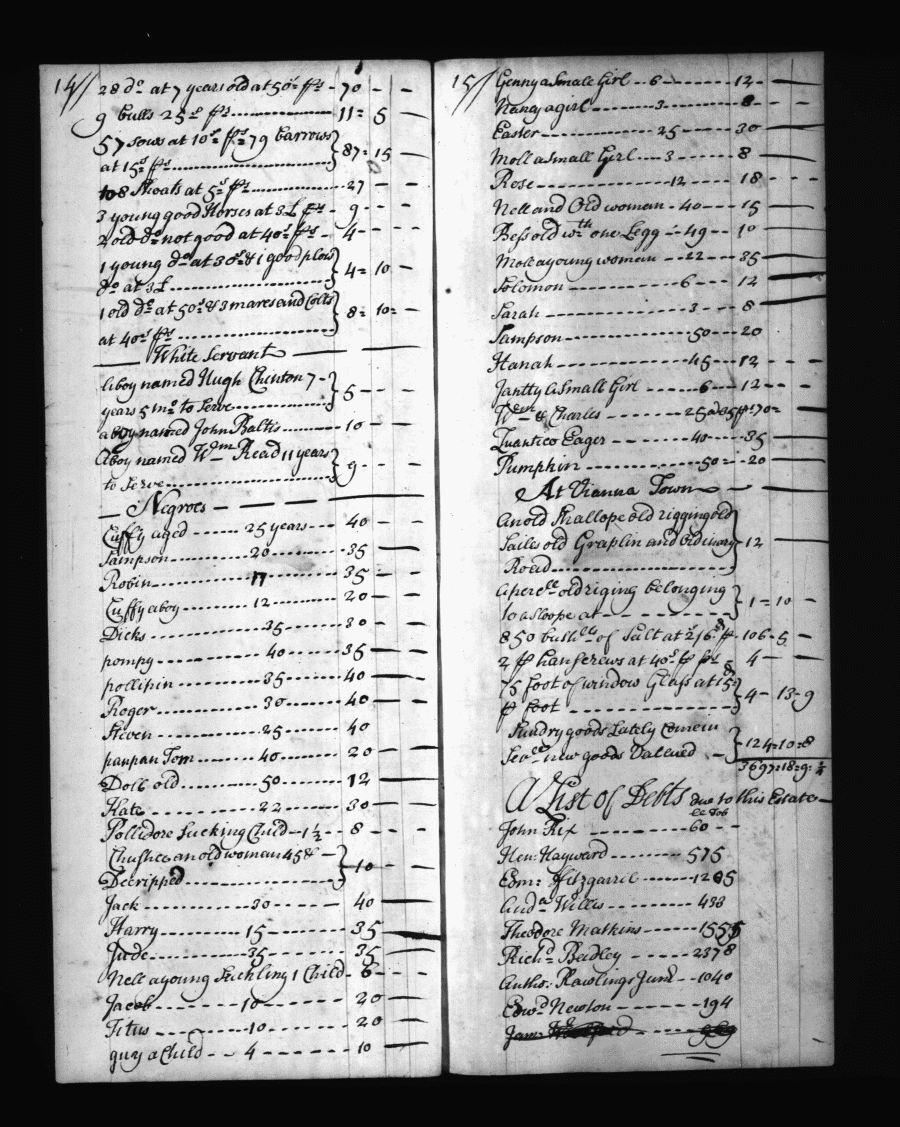 14//
28 do at 7 years old at 50s ps - 70 - -
9 bulls 25s ps 11 = 5 -
57 sows at 10s ps 79 barrows
at 15s ps 87 = 15 -
108 Shoats at 5s ps 27 - -
3 young good Horses at 3L ps - 9 - -
2 old do not good at 40s ps - 4 - -
1 young do at 30s & 1 good plow
do at 3L 4 = 10 -
1 old do at 50s & 3 mares and Colts
at 40s ps 8 = 10 =
White Servant
A boy named Hugh Chinton 7
years 5 mo to Serve 5 - -
a boy named John Baltis 10 - -
A boy named Wm Read 11 years
to Serve 9 - -
Negroes
Cuffy aged 25 years 40 - -
Sampson 20 35
Robin 17 35 -
Cuffy a boy 12 20 - -
Dicks 35 30 - -
pompy 40 35
pollipin 35 40
Roger 30 40
Steven 25 40
panpan Tom 40 20
Doll old 50 12
Kate 22 30
Pollidore Sucking Child - 1½ - 8 - -
an old woman 45 &
Decripped 10 - -
Jack 30 40
Harry 15 35
Jude 35 35
Nell a young Suckling 1 Child - 6 - -
Jacob 10 20
Titus 10 20
guy a Child 4 10
15//
Genny a Small Girl - 6 12 -
Nancy a girl 3 8 -
Easter 25 30
Moll a Small Girl 3 8
Rose 12 18 - -
Nell and Old woman - 40 15
Bess old wth one Legg - 49 10
Moll a young woman 22 35
Solomon 6 12
Sarah 3 8
Sampson 50 20
Hanah 45 12
Jantty a Small Girl 6 12 - -
Wm & Charles 25 a 35 ps 70 =
Quantico Eager 40 35
Pumphin 50 = 20
At Vianna Town
An old Shallope old rigging old
Sailes old Graplin and ordinary 12
Road
A percell old riging belonging
to a Sloope at 1 = 10 -
850 bushlls of Salt at 2s/6 p 106 - 5 -
2 p hanscrews at 40s p ps 4 - -
75 foot of window Glass at 15d
p foot 4 - 13 - 9
Sundry goods Lately Come in
new goods Vallued 124 = 10 = 8
3697 = 18 = 9 ¼
A List of Debts due to this Estate
lb Tob
John Rix 60 - -
Hen: Hayward 575
Edm: Fitzgarril 1205
Andw Willis 433
Theodore Matkins 1555
Richd Beadley 2378
Antho: Rawlings Junr 1040
Edwd Newton 194
Jam: